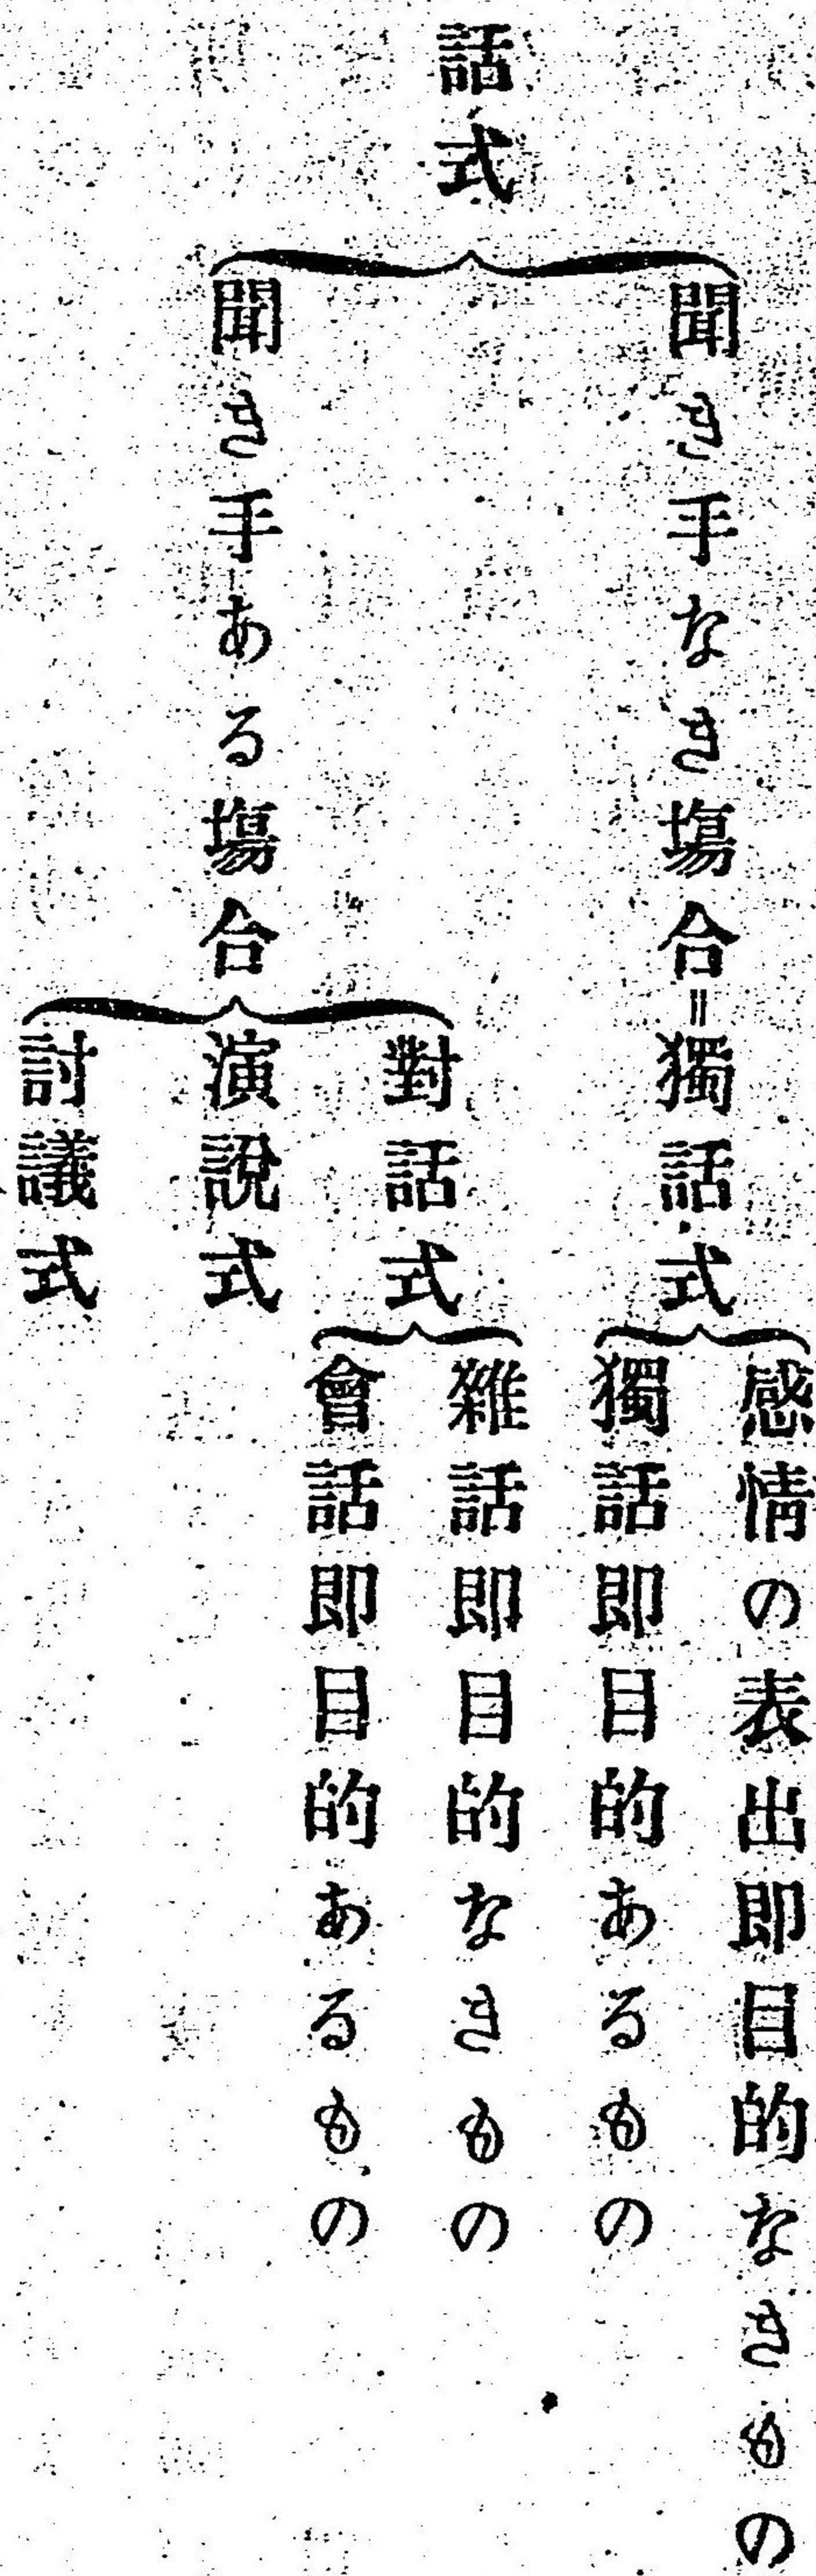 話式
聞き手なき塲合=獨話式
感情の表出即目的なきもの
獨話即目的あるもの
聞き手ある塲合
對話式
雜話即目的なきもの
會話即目的あるもの
演說式
討議式